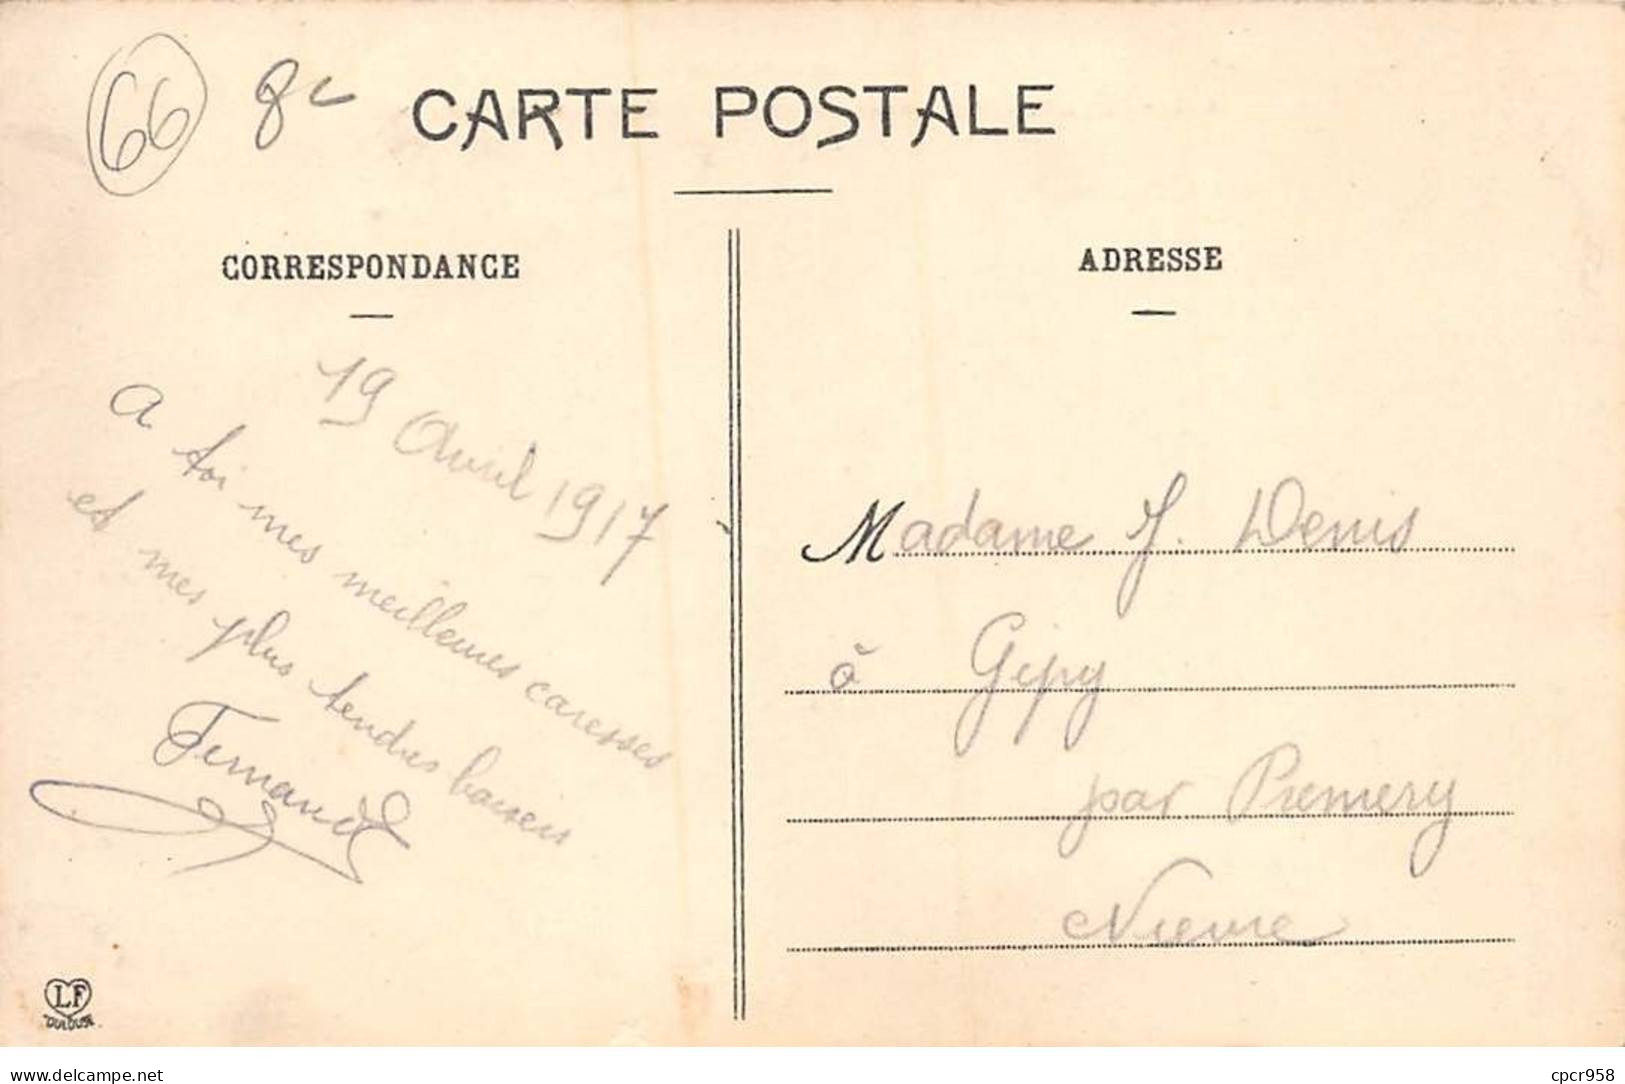 66 8c
CARTE POSTALE
CORRESPONDANCE
ADRESSE
19 Avril 1917
a toi mes meilleures caresses
et mes plus tendres baisers
Fernand
Madame J. Denis
à Gipy
par Premery
Nievre
LF
TOULOUSE
delcampe.net
cpcr958